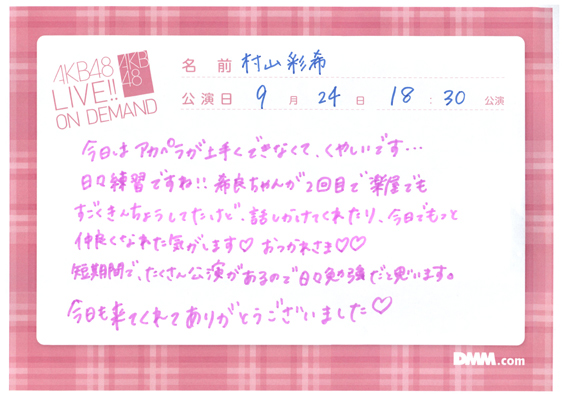 AKB48
LIVE!!
ON DEMAND
AKB
48
名前 村山彩希
公演日 9月24日 18:30公演
今日はアカペラが上手くできなくて、くやしいです…
日々練習ですね!! 希良ちゃんが2回目で楽屋でも
すごくきんちょうしてたけど、話しかけてくれたり、今日でもっと
仲良くなれた気がします♡ おつかれさま♡♡
短期間で、たくさん公演があるので日々勉強だと思います。
今日も来てくれてありがとうございました♡
DMM.com